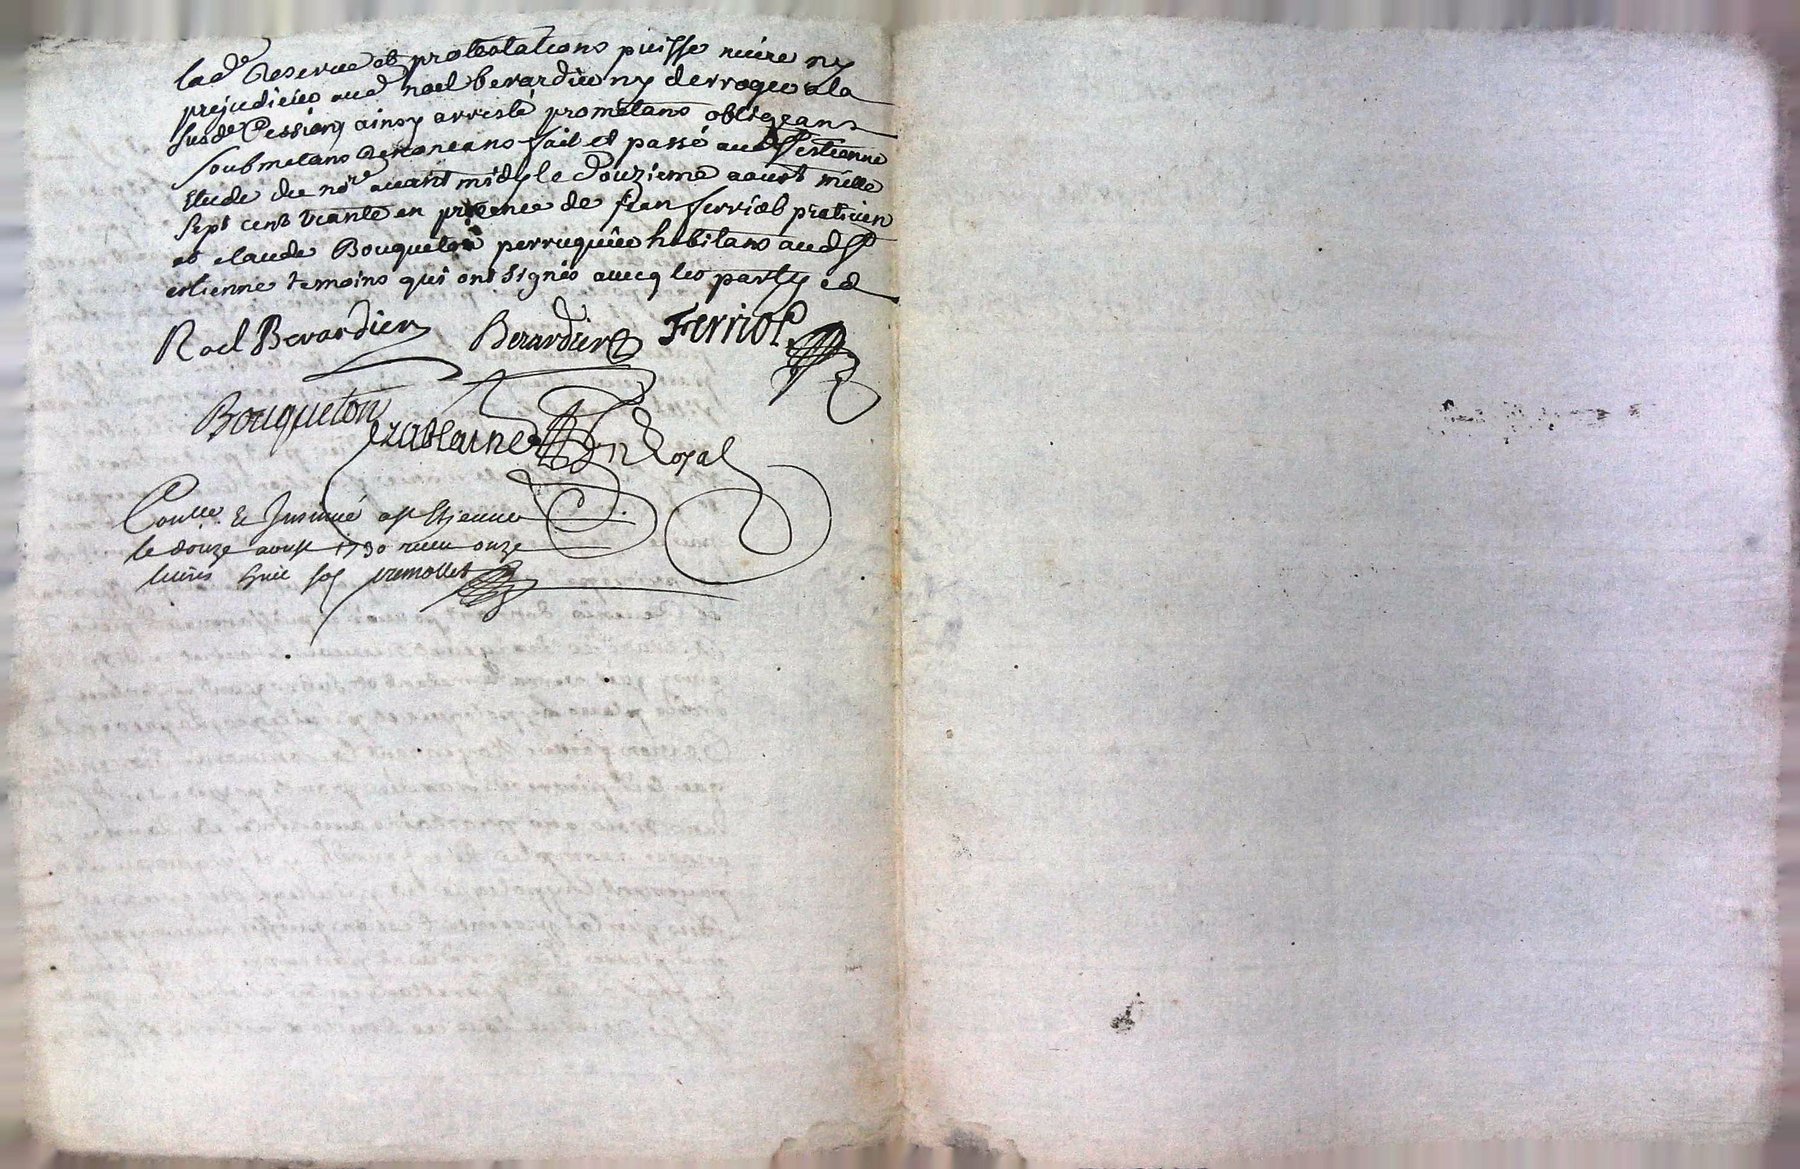 lad.e Reserve et protestations puisse nuire ny
prejudicier aud. noel berardier ny derroger a la
susd.e Cession, ainsy arresté prometans obligeans
soubmetans Renoncans fait et passé aud. St estienne
Etude du no.re avant midy le Douzieme aoust mille
sept cent trante en presence de Jean ferriol praticien
et claude Bouqueton perruquier habitans aud. St
estienne temoins qui ont signés avecq les party
Noel Berardier Berardier Ferriol
Bouqueton Royal
Con.lle & Insinué a St Etienne
le douze aoust 1730 receu onze
livres huit sol